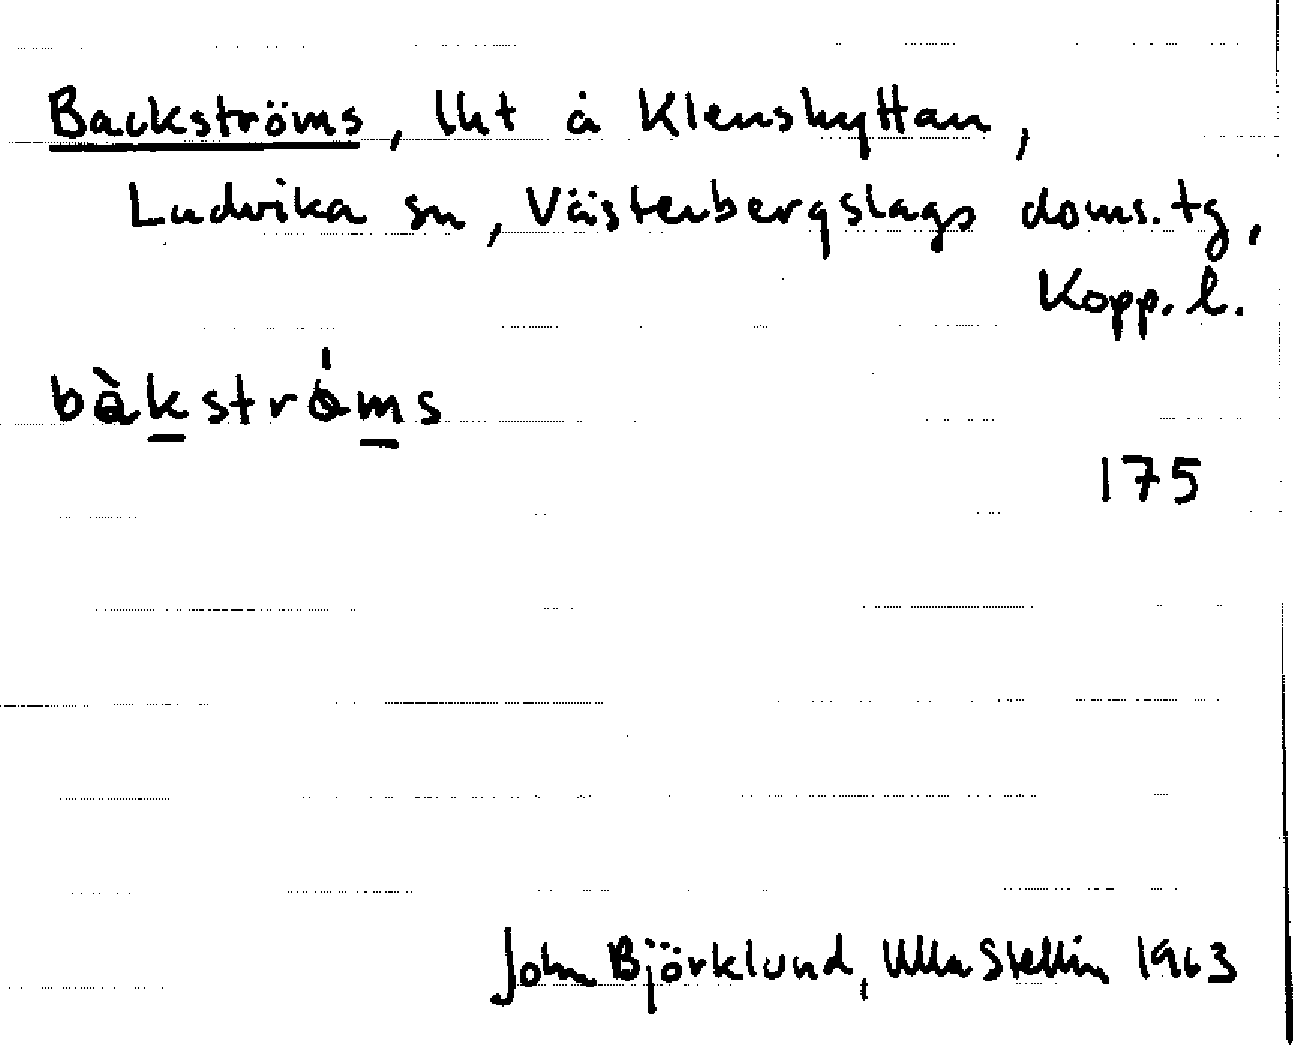 Backströms, lht å Klenshyttan,
Ludvika sn, Västerbergslags doms. tg,
Kopp. l.
bàkstrǿms
175
John Björklund, Ulla Stellin 1963